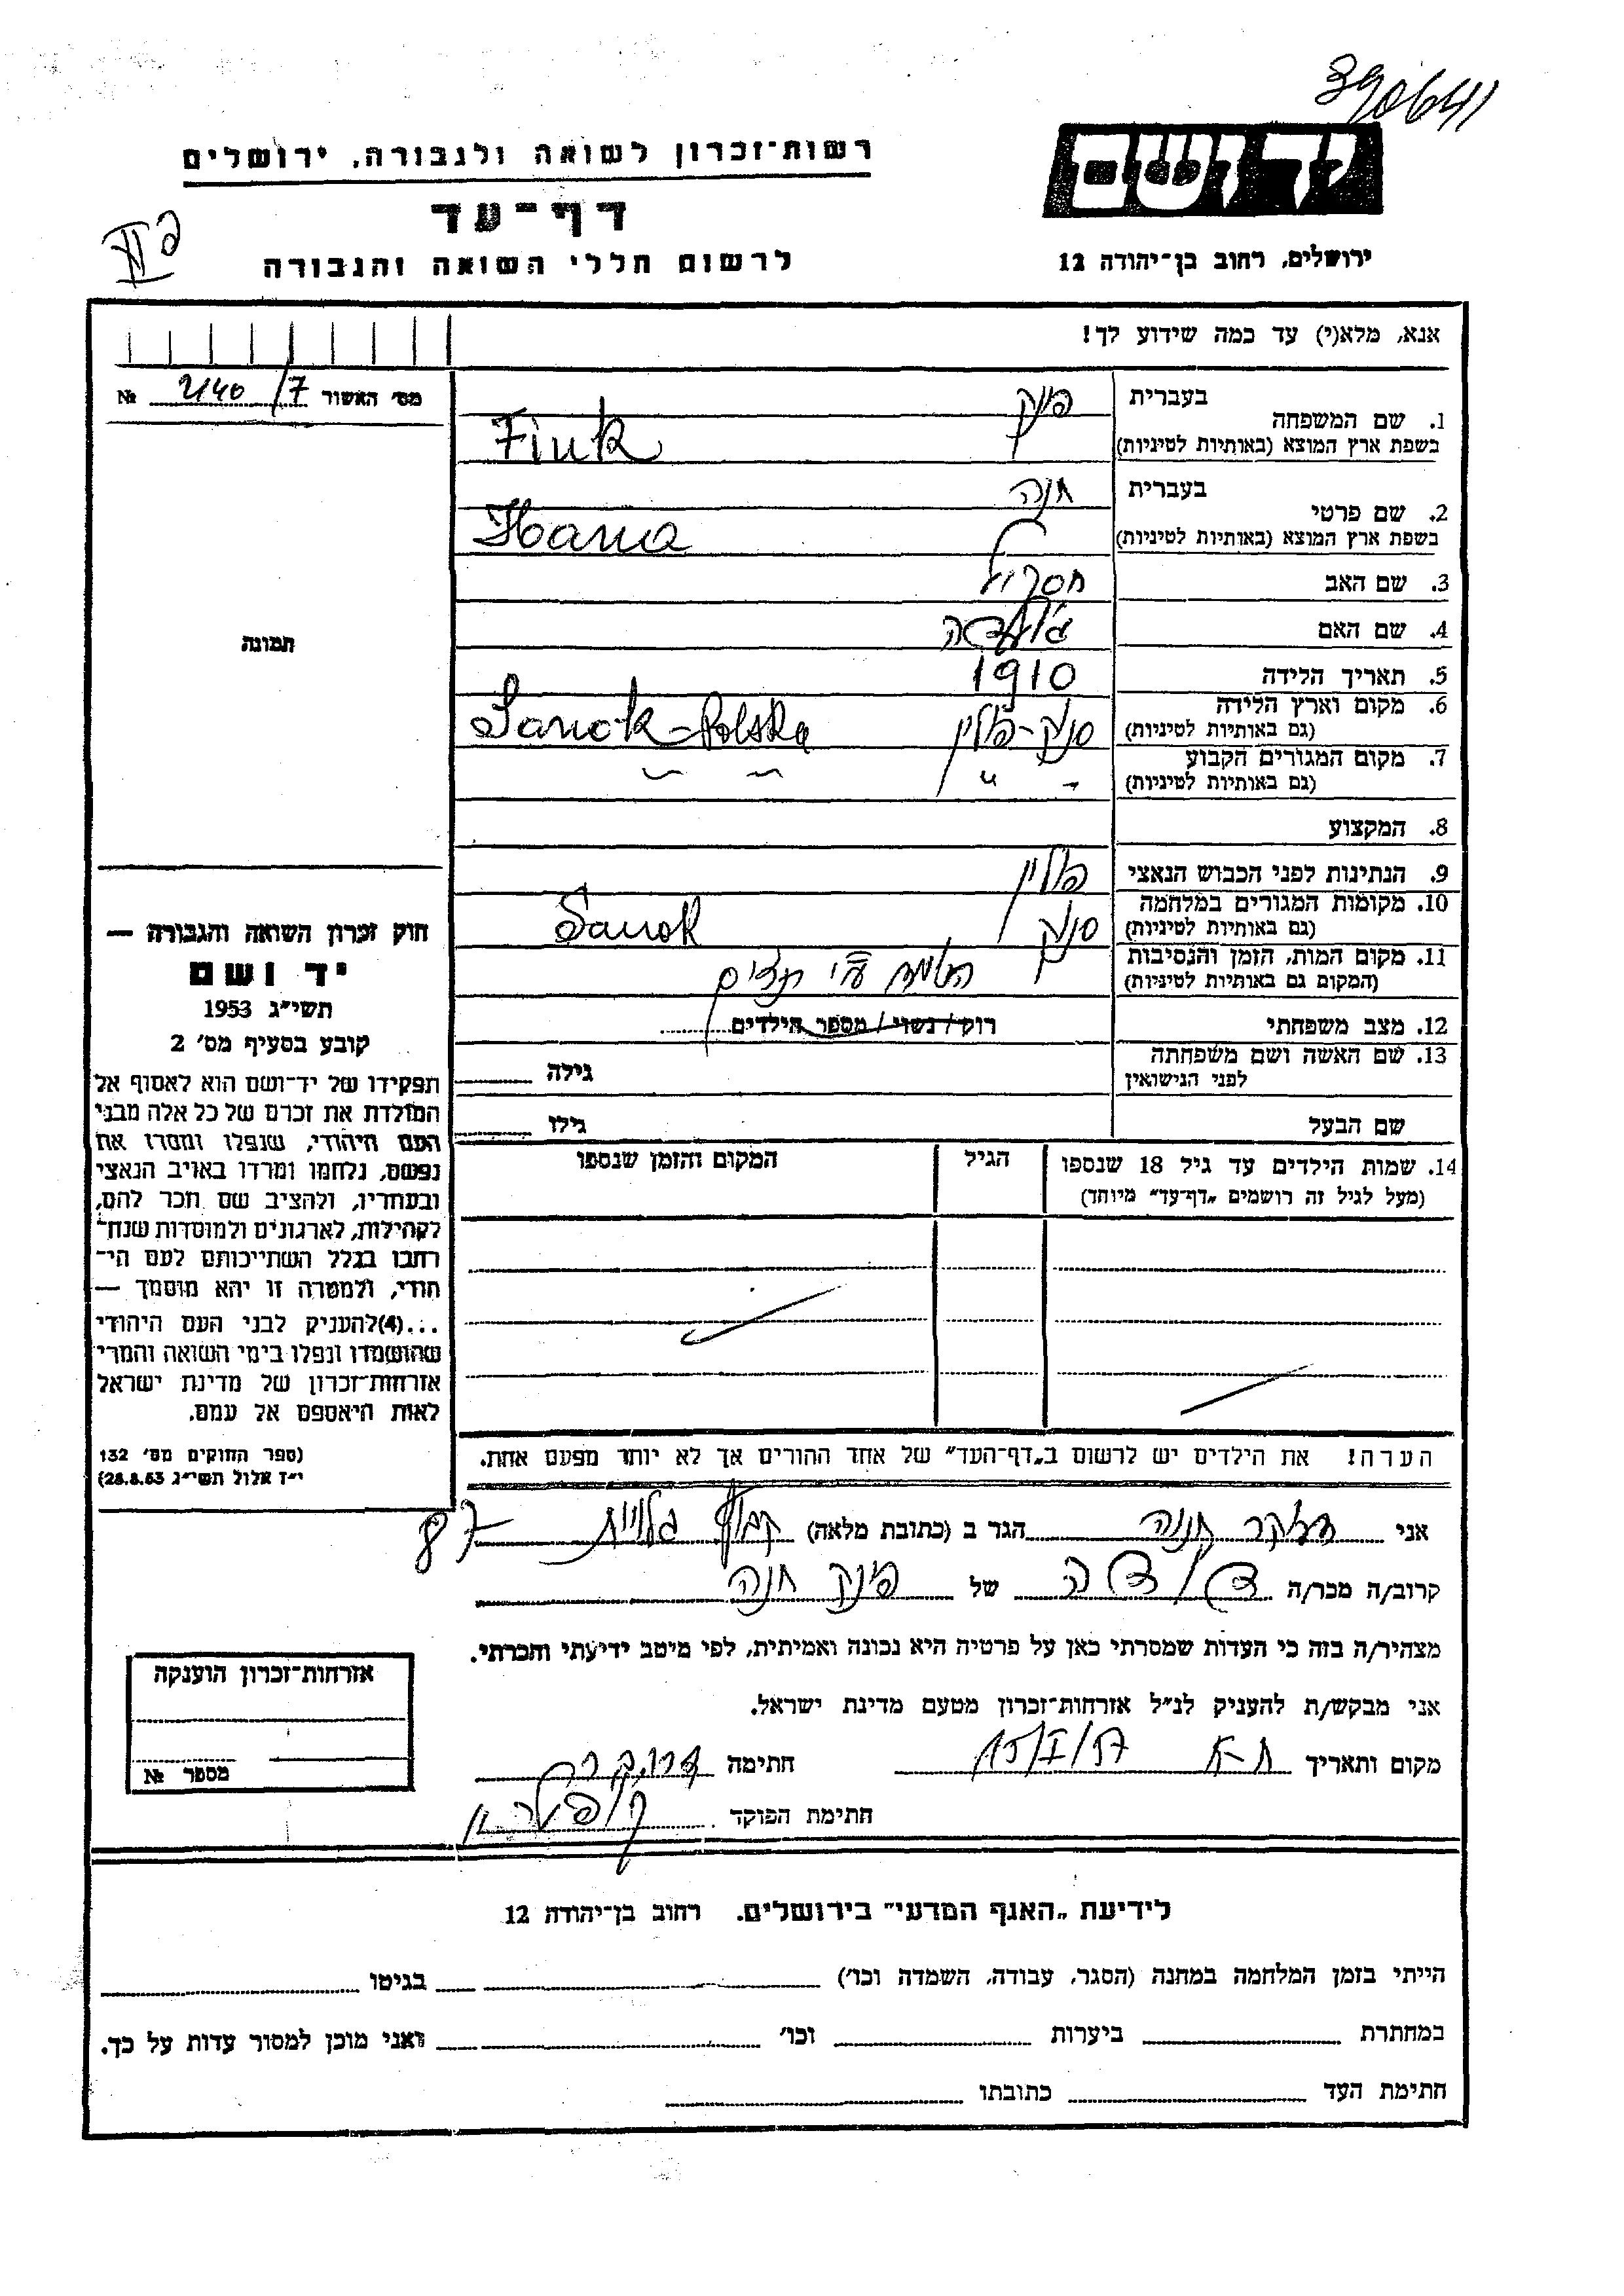 390641
רשות־זכרון לשואה ולגבורה, ירושלים
יד ושם
דף־עד
לרשום חללי השואה והגבורה
ירושלים, רחוב בן־יהודה 12
אנא, מלא(י) עד כמה שידוע לך!
מס׳ האשור 2140/7 №
בעברית פינק
1. שם המשפחה
בשפת ארץ המוצא (באותיות לטיניות) Fink
בעברית חנה
2. שם פרטי
בשפת ארץ המוצא (באותיות לטיניות) Hana
3. שם האב
4. שם האם
5. תאריך הלידה 1910
6. מקום וארץ הלידה
(גם באותיות לטיניות) סנוק-פולין Sanok-Polska
7. מקום המגורים הקבוע
(גם באותיות לטיניות) - " - ~ ~
8. המקצוע
9. הנתינות לפני הכבוש הנאצי פולין
10. מקומות המגורים במלחמה
(גם באותיות לטיניות) סנוק Sanok
11. מקום המות, הזמן והנסיבות
(המקום גם באותיות לטיניות) ע"י נצים
12. מצב משפחתי רוק/נשוי/מספר הילדים
13. שם האשה ושם משפחתה
לפני הנישואין גילה
שם הבעל גילו
14. שמות הילדים עד גיל 18 שנספו הגיל המקום והזמן שנספו
(מעל לגיל זה רושמים „דף־עד״ מיוחד)
הערה! את הילדים יש לרשום ב„דף־העד״ של אחד ההורים אך לא יותר מפעם אחת.
תמונה
חוק זכרון השואה והגבורה —
יד ושם
תשי״ג 1953
קובע בסעיף מס׳ 2
תפקידו של יד־ושם הוא לאסוף אל
המולדת את זכרם של כל אלה מבני
העם היהודי, שנפלו ומסרו את
נפשם, נלחמו ומרדו באויב הנאצי
ובעוזריו, ולהציב שם וזכר להם,
לקהילות, לארגונים ולמוסדות שנח־
רבו בגלל השתייכותם לעם הי־
הודי, ולמטרה זו יהא מוסמך —
...(4)להעניק לבני העם היהודי
שהושמדו ונפלו בימי השואה והמרי
אזרחות־זכרון של מדינת ישראל
לאות היאספם אל עמם.
(ספר החוקים מס׳ 132
י״ז אלול תשי״ג 28.8.53)
אני חנה הגר ב (כתובת מלאה) קבוץ גלויות 87
קרוב/ה מכר/ה דודה של פינק חנה
מצהיר/ה בזה כי העדות שמסרתי כאן על פרטיה היא נכונה ואמיתית, לפי מיטב ידיעתי והכרתי.
אני מבקש/ת להעניק לנ״ל אזרחות־זכרון מטעם מדינת ישראל.
מקום ותאריך ת-א 15/I/57 חתימה
חתימת הפוקד
אזרחות־זכרון הוענקה
מספר №
לידיעת „האגף המדעי״ בירושלים. רחוב בן־יהודה 12
הייתי בזמן המלחמה במחנה (הסגר, עבודה, השמדה וכו׳) בגיטו
במחתרת ביערות וכו׳ ואני מוכן למסור עדות על כך.
חתימת העד כתובתו